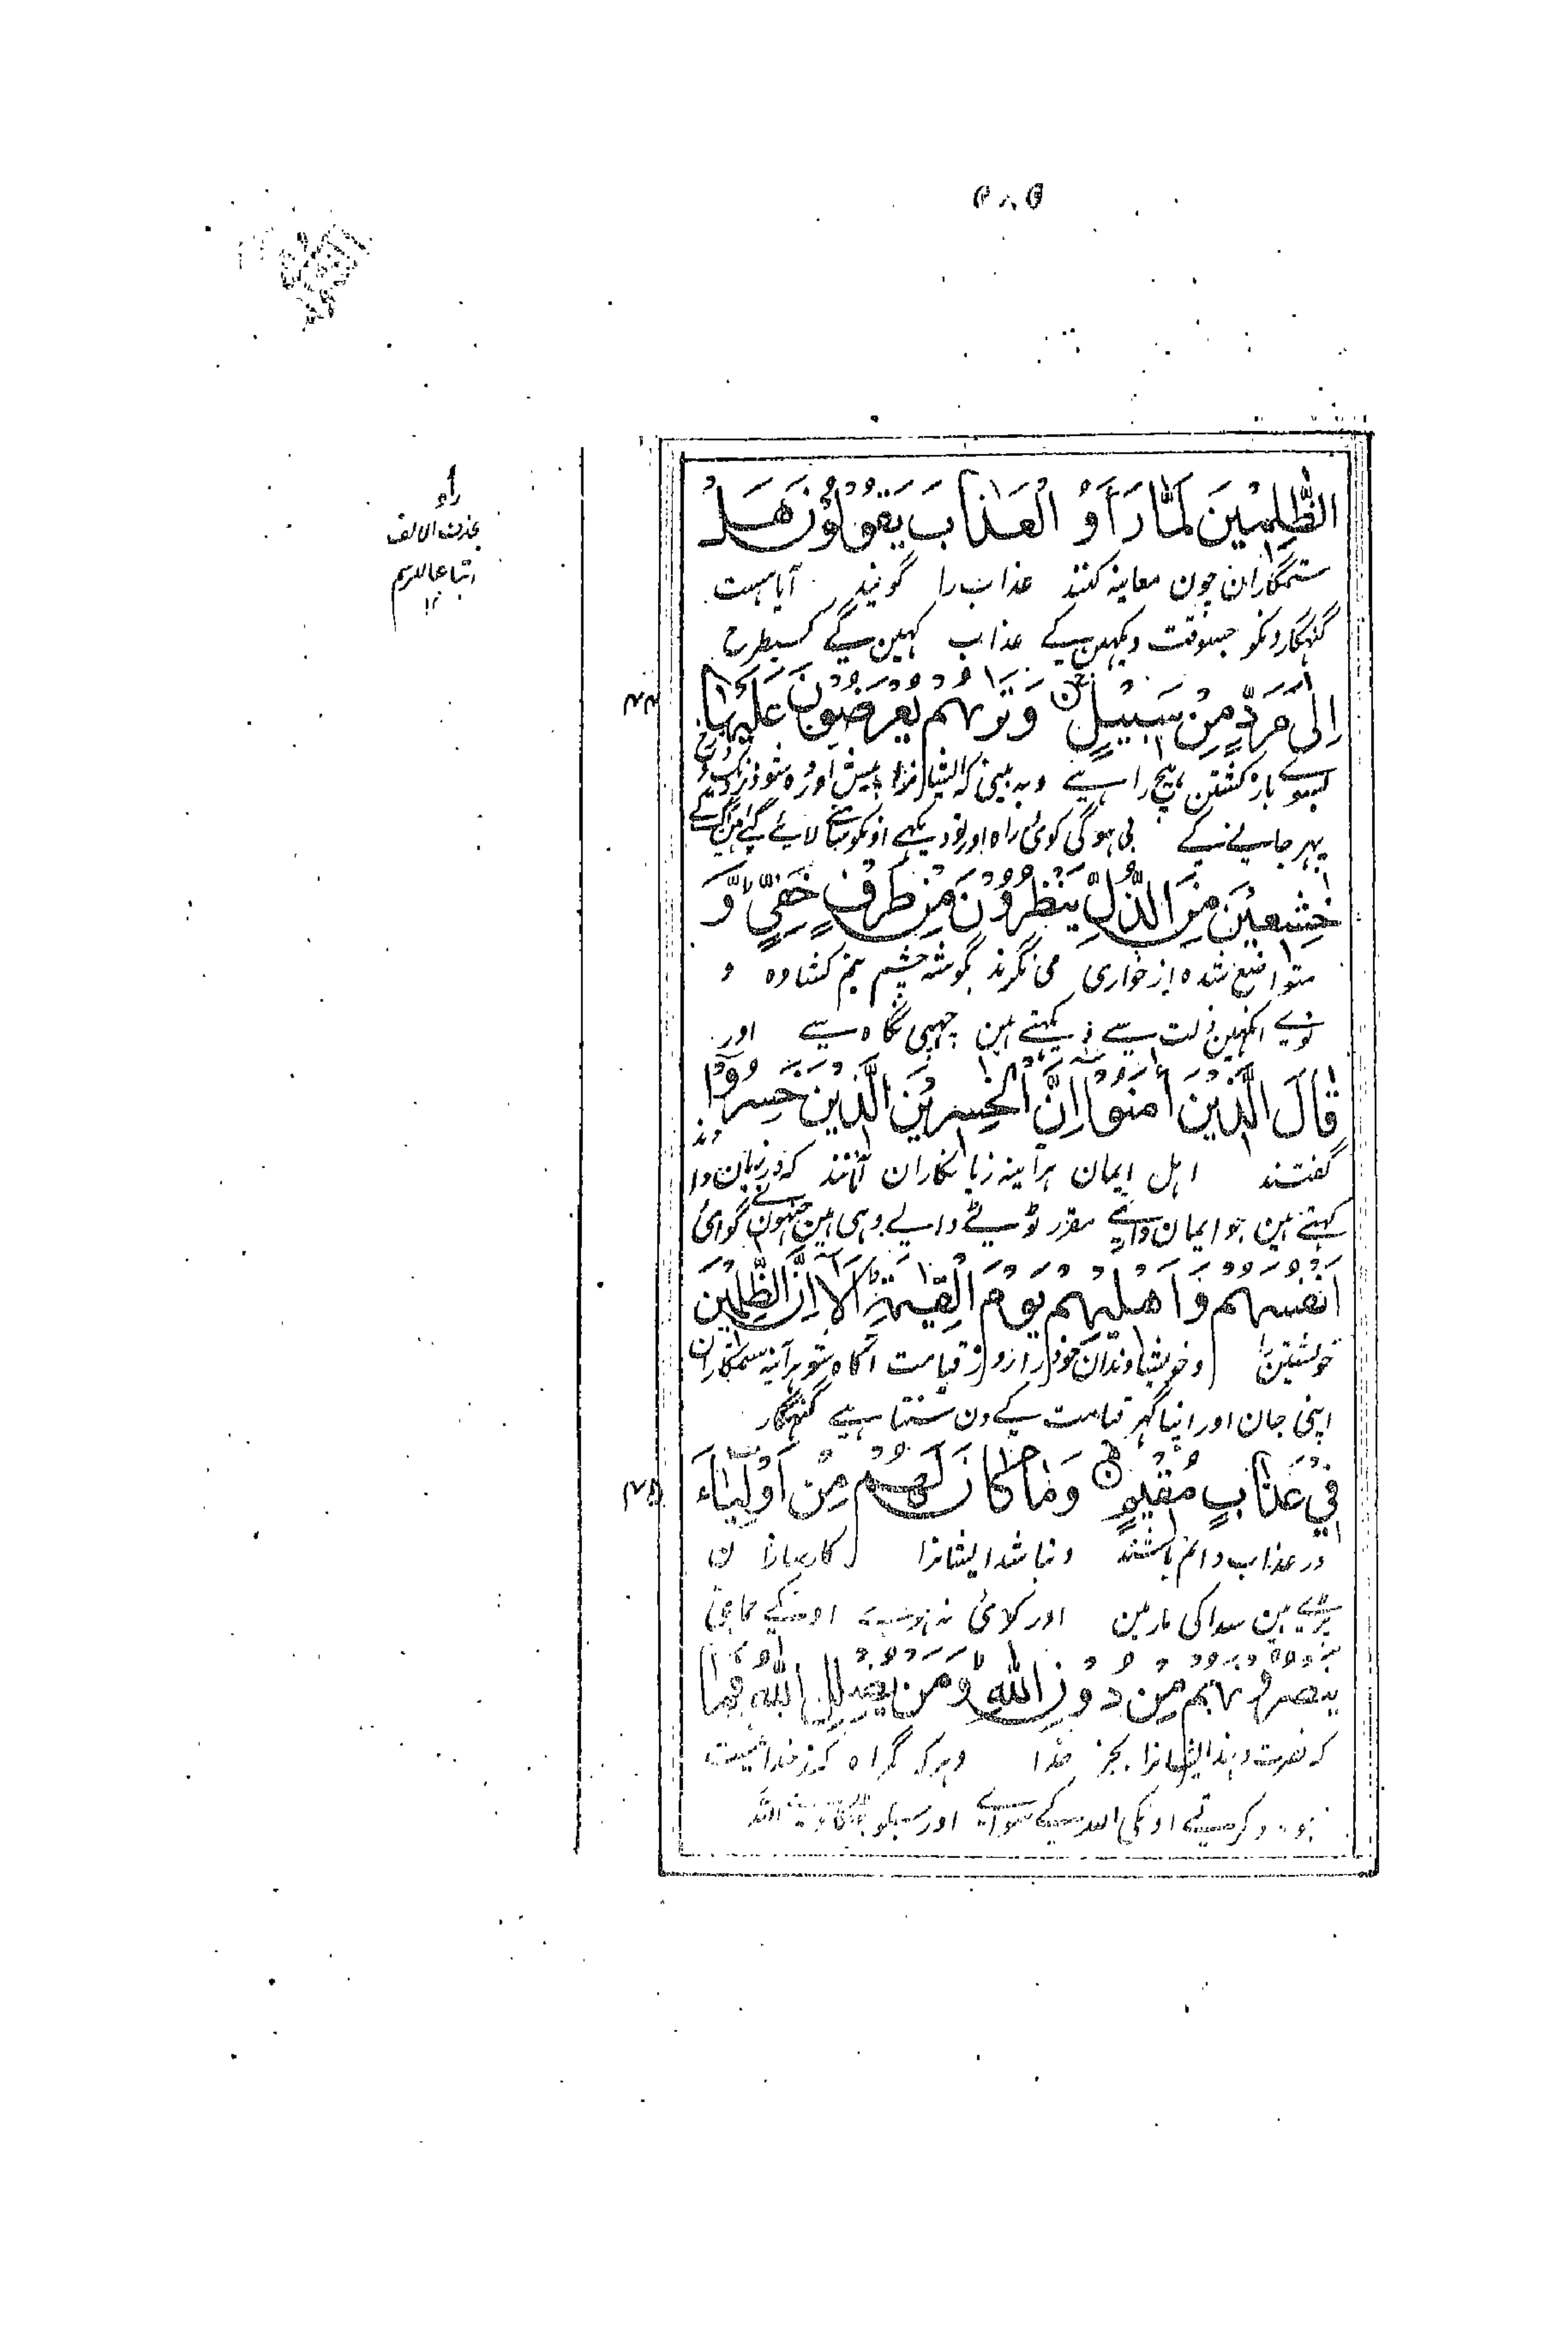 ۵۸۵
الظّٰلِمِيْنَ لَمَّا رَاَوُ الْعَذَابَ يَقُوْلُوْنَ هَلْ
ستمگاران چون معاینه کنند عذاب را گویند آیا هست
گنہگارونکو جسوقت دیکھین گے عذاب کہین گے کسیطرح
اِلٰى مَرَدٍّ مِّنْ سَبِيْلٍ وَتَرٰىهُمْ يُعْرَضُوْنَ عَلَيْهَا
بسوے باز گشتن ہیچ راہے و بہ بینی کہ ایشانرا پیش آورده شود نزدیک
پہر جانے کے بی ہوگی کوئی راہ اور تو دیکھے اونکو سامنے لائے گئے ہین آگ کے
خٰشِعِيْنَ مِنَ الذُّلِّ يَنْظُرُوْنَ مِنْ طَرْفٍ خَفِيٍّ وَ
متواضع شده از خواری می نگرند بگوشہ چشم نیم کشاده و
آنکہین ذلت سے دیکہتے ہین چہپی نگاہ سے اور
قَالَ الَّذِيْنَ اٰمَنُوْٓا اِنَّ الْخٰسِرِيْنَ الَّذِيْنَ خَسِرُوْٓا
گفتند اہل ایمان ہر آینہ زیانکاران آنانند کہ در زیان دادند
کہتے ہین جو ایمان والے مقرر ٹوٹے والے وہی ہین جنہون نے گوائی
اَنْفُسَهُمْ وَاَهْلِيْهِمْ يَوْمَ الْقِيٰمَةِ اَلَآ اِنَّ الظّٰلِمِيْنَ
خویشتن را و خویشاوندان خود را روز قیامت آگاہ شو ہر آینہ ستمگاران
اپنی جان اور اپنا گہر قیامت کے دن سنتا ہے گنہگار
فِيْ عَذَابٍ مُّقِيْمٍ وَمَا كَانَ لَهُمْ مِّنْ اَوْلِيَآءَ
در عذاب دائم باشند و نباشد ایشانرا کارسازان
پڑے ہین سدا کی مار مین اور کوئی نہ ہوے اونکے حمایتی
يَنْصُرُوْنَهُمْ مِّنْ دُوْنِ اللّٰهِ وَمَنْ يُّضْلِلِ اللّٰهُ فَمَا
کہ نصرت دہند ایشانرا بجز خدا و ہر کہ گمراہ کند خدا نیست
کرتے اونکی اللہ کے سواے اور جسکو اللہ
رأو
بحذف الالف
اتباعا للرسم
۱۲
۴۴
۴۵